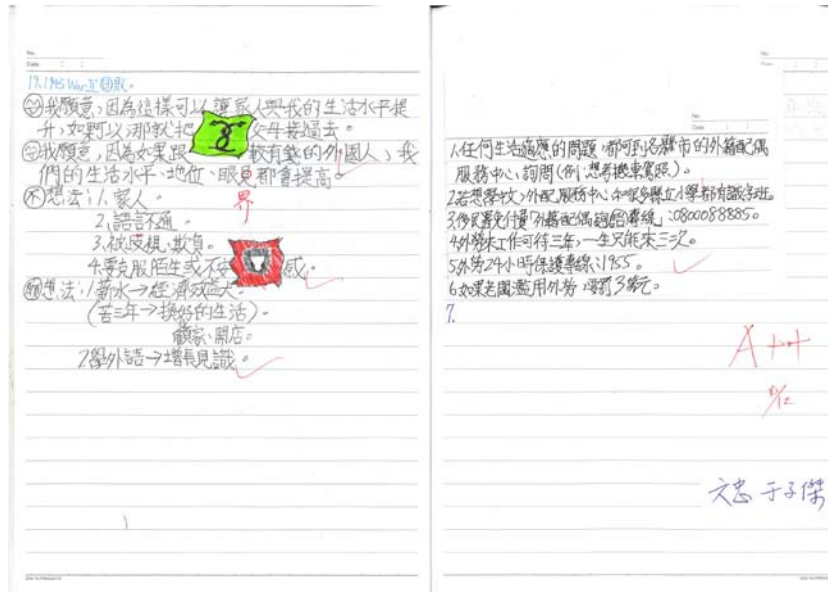 No.
Date
17.1945 War II 德敗。
我願意，因為這樣可以讓家人與我的生活水平提
升，如果可以，那就把 父母接過去。
我願意，因為如果跟 較有錢的外國人，我
們的生活水平、地位、眼見都會提高。
界
不想法：1.家人。
2.語言不通。
3.被歧視、欺負。
4.要克服陌生或不安 感。
想法：1.薪水→經濟效益大。
(苦三年→換好的生活)
顧家、開店。
2.學外語→增長見識。
No.
Date
1.任何生活適應的問題，都可到各縣市的外籍配偶
服務中心詢問(例：想考機車駕照)。
2.若想學中文，外配服務中心和很多縣立小學都有識字班。
3.移民署免付費「外籍配偶諮詢專線」：0800088885。
4.外勞來工作可待三年，一生只能來三次。
5.外勞24小時保護專線：1955。
6.如果老闆濫用外勞，得罰3萬元。
7.
A++
12
文忠 于子傑